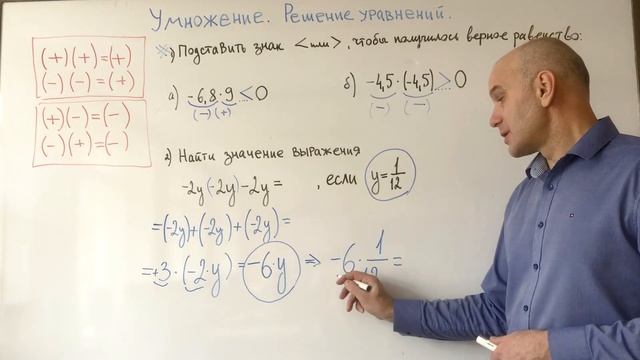 Умножение. Решение уравнений.
(+)(+)=(+)
(-)(-)=(+)
(+)(-)=(-)
(-)(+)=(-)
1) Подставить знак < или >, чтобы получилось верное равенство:
а) -6,8·9<0
(-) (+)
б) -4,5·(-4,5)>0
(-) (-)
2) Найти значение выражения
-2y(-2y)-2y= , если y=1/12
=(-2y)+(-2y)+(-2y)=
=+3·(-2·y)=-6·y => -6·1/12=